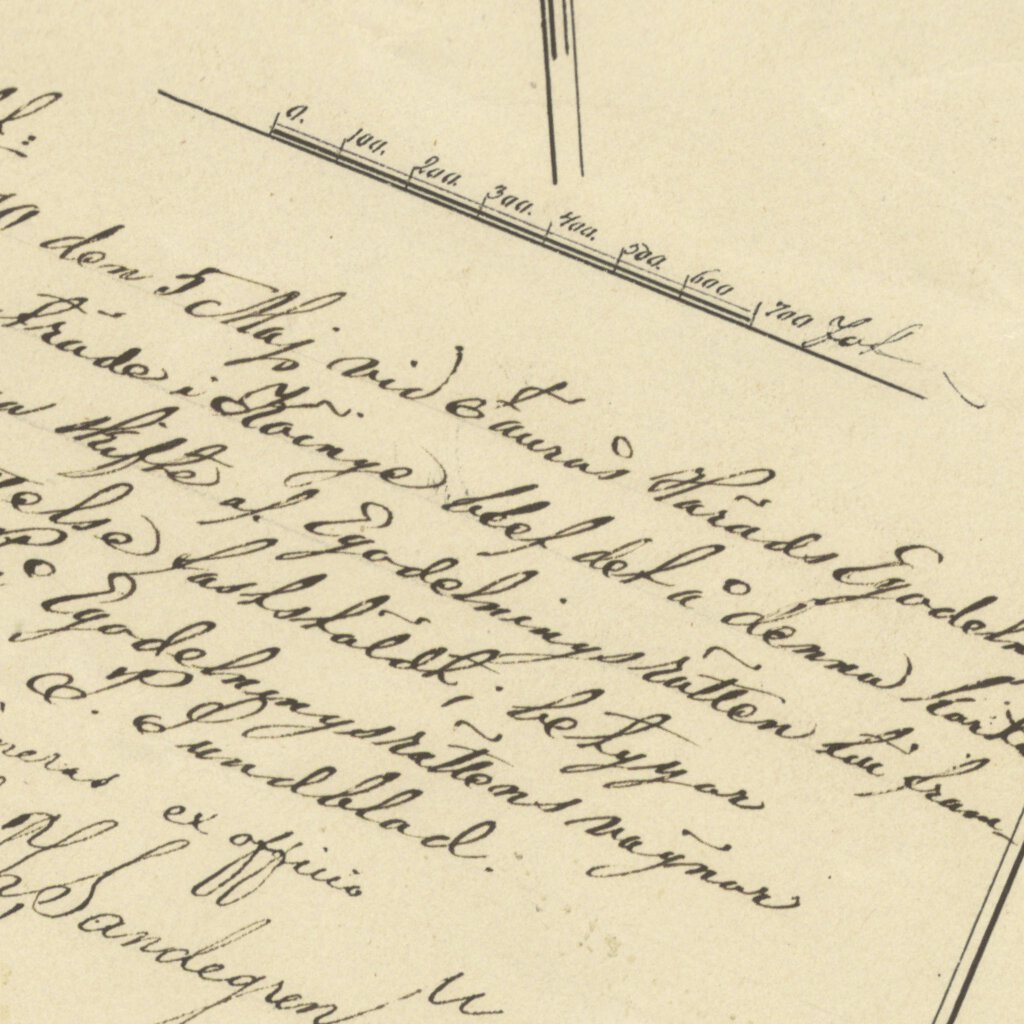 0. 100. 200. 300. 400. 500. 600 700 Fot
den 5 Maj vid Faurås Härads Egodeln
träde i Köinge blef det å denna Karta
skifte af Egodelningsrätten till fram
telse fastställdt; betygar
På Egodelningsrättens vägnar
C. P. Sundblad.
ex officio
Sandegren